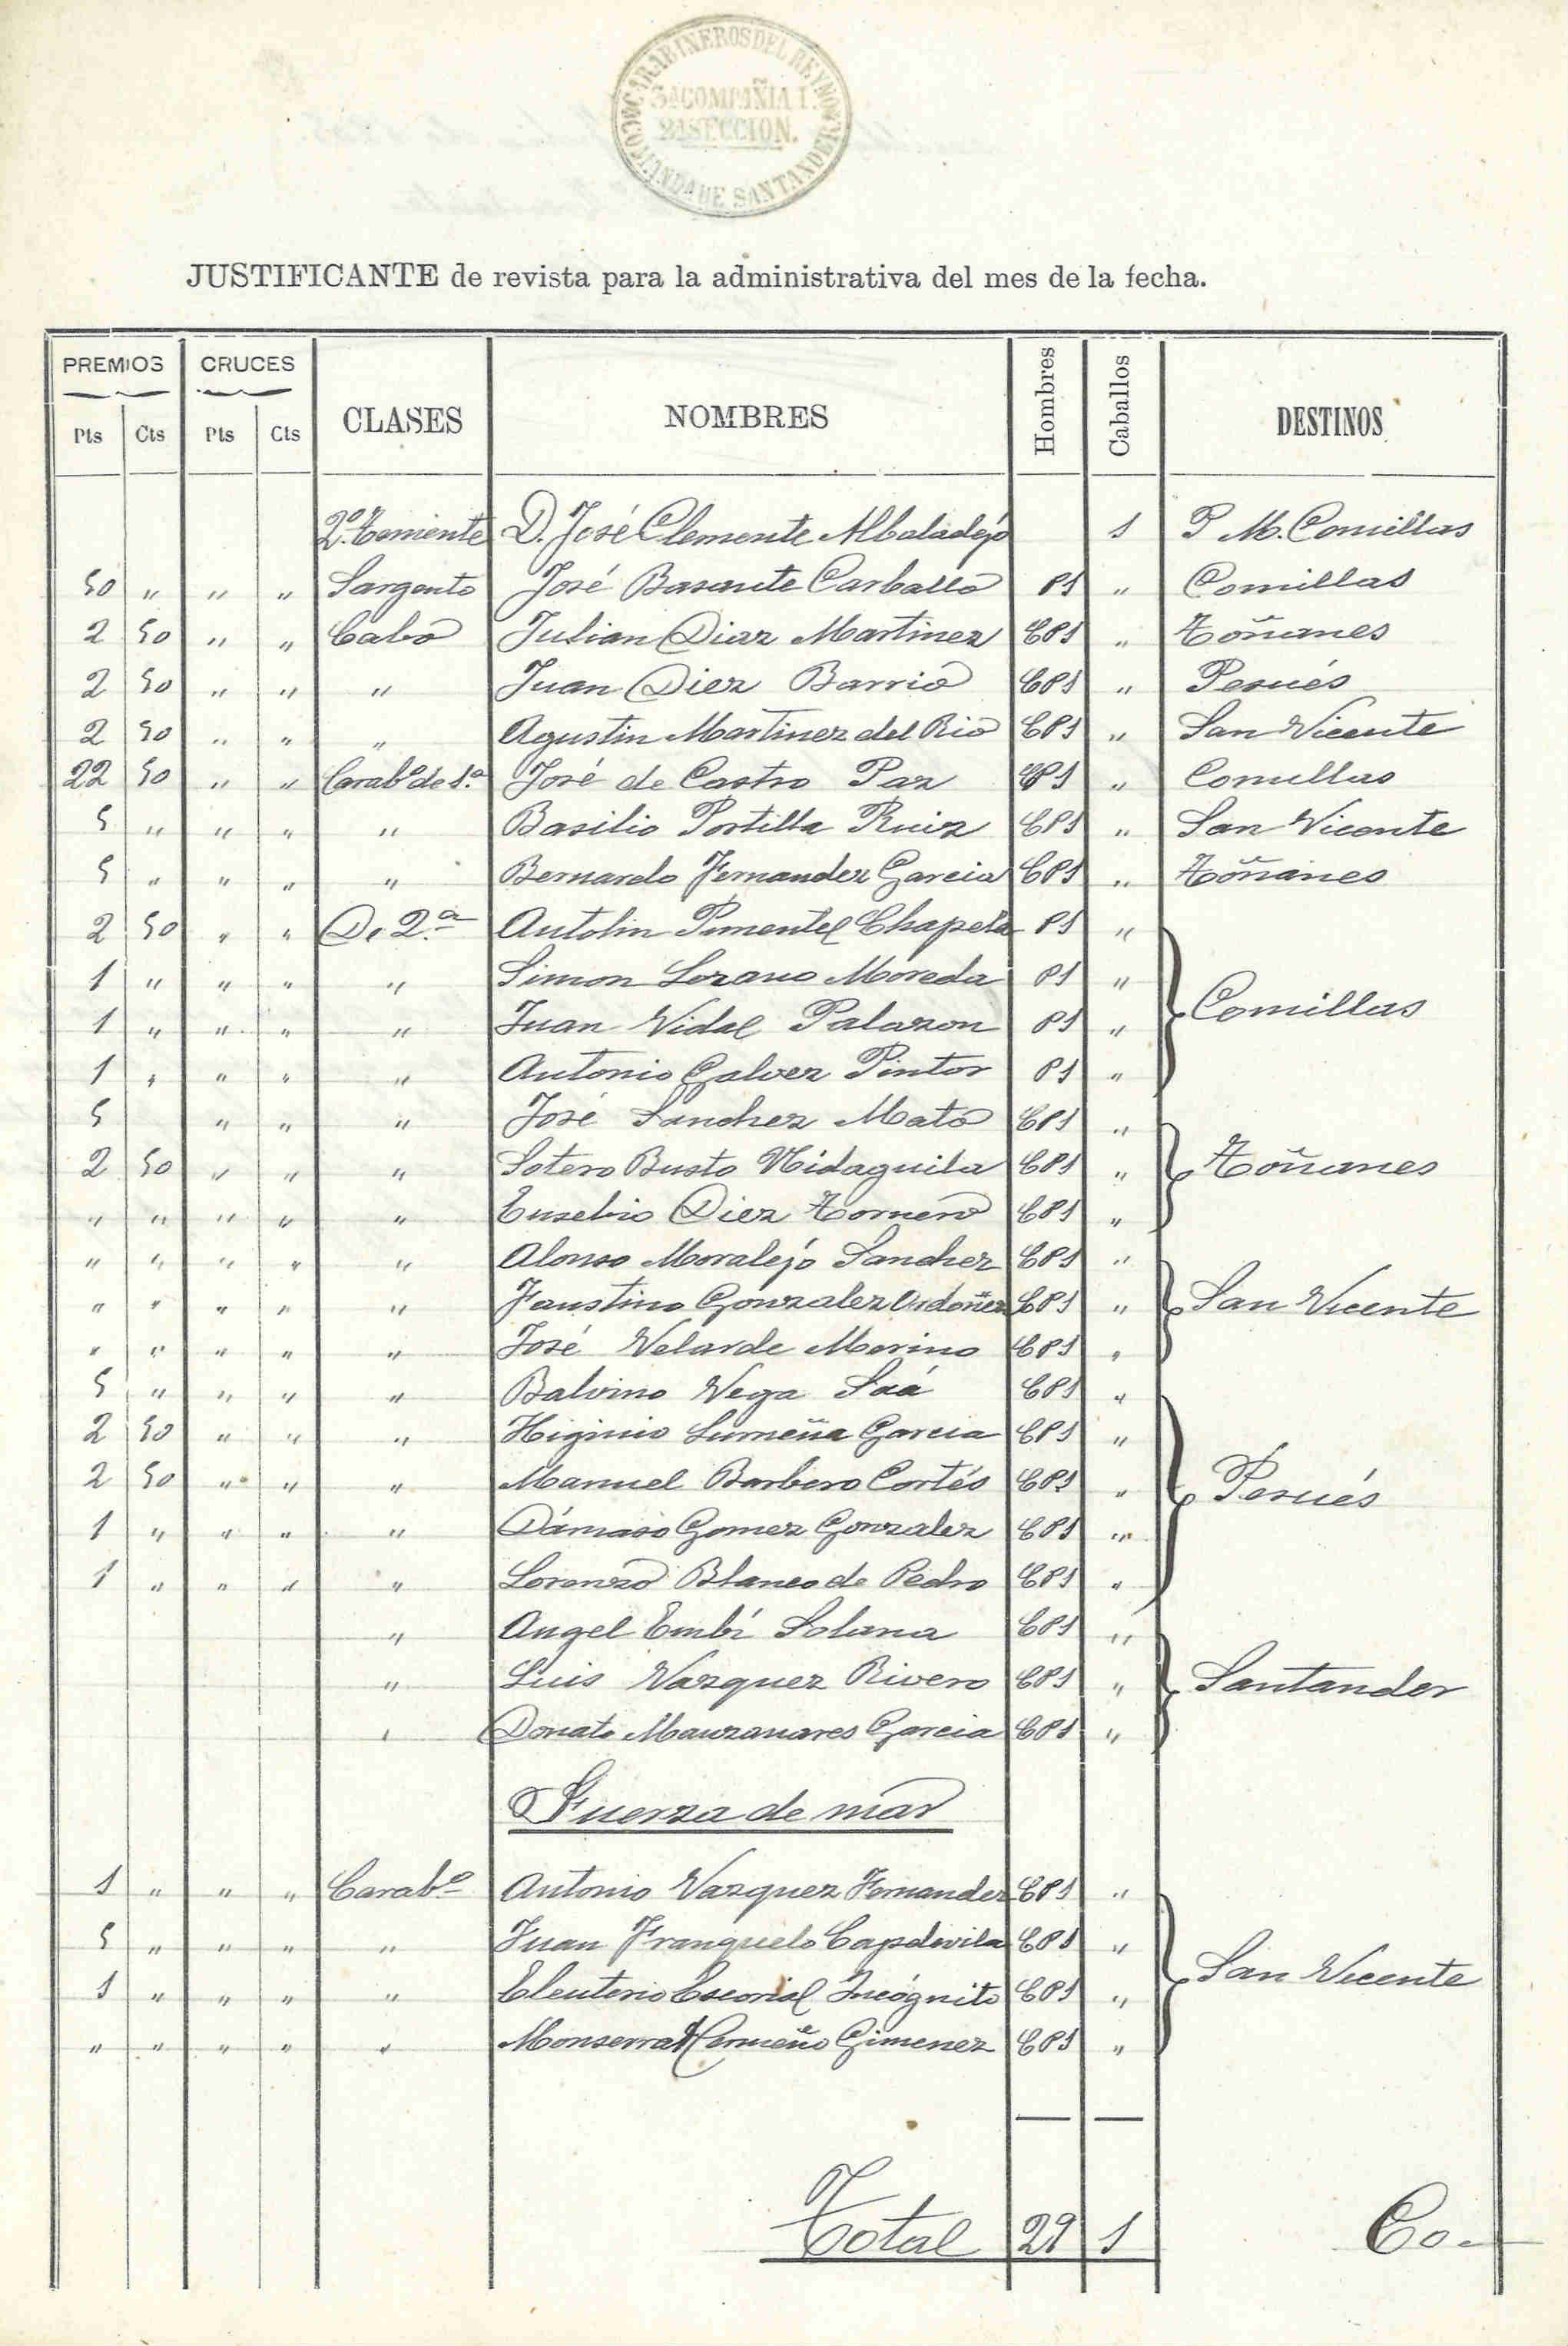 COMANDA DE SANTANDER CARABINEROS DEL REYNO
3ª COMPAÑIA
2ª SECCION.
JUSTIFICANTE de revista para la administrativa del mes de la fecha.
PREMIOS CRUCES CLASES NOMBRES Hombres Caballos DESTINOS
Pts Cts Pts Cts
2º Teniente D. José Clemente Albaladejo 1 P M. Comillas
50 " " " Sargento José Basante Carballo P1 " Comillas
2 50 " " Cabo Julian Diaz Martinez CP1 " Toñanes
2 50 " " " Juan Diez Barrio CP1 " Pesués
2 50 " " " Agustin Martinez del Rio CP1 " San Vicente
22 50 " " Carabº de 1ª José de Castro Paz CP1 " Comillas
5 " " " " Basilio Portilla Ruiz CP1 " San Vicente
5 " " " " Bernardo Fernandez Garcia CP1 " Toñanes
2 50 " " De 2ª Antolin Pimentel Chapela P1 "
1 " " " " Simon Lozano Moreda P1 "
Comillas
1 " " " " Juan Vidal Palazon P1 "
1 " " " " Antonio Galvez Pintor P1 "
5 " " " José Sanchez Mato CP1 "
2 50 " " " Sotero Busto CP1 " Toñanes
" " " " " Eusebio Diez Tornero CP1 "
" " " " " Alonso Moralejo Sanchez CP1 "
" " " " " Faustino Gonzalez Ordoñez CP1 " San Vicente
" " " " " José Velarde Merino CP1 "
5 " " " " Balvino Vega Saá CP1 "
2 50 " " " Higinio Garcia CP1 "
2 50 " " " Manuel Barbero Cortés CP1 " Pesués
1 " " " " Dámaso Gomez Gonzalez CP1 "
1 " " " " Lorenzo Blanco de Pedro CP1 "
" Angel Embí Solana CP1 "
" Luis Vazquez Rivero CP1 " Santander
" Donato Manzanares Garcia CP1 "
Fuerza de mar
1 " " " Carabº Antonio Vazquez Fernandez CP1 "
5 " " " " Juan Franquelo Capdevila CP1 "
San Vicente
1 " " " " Eleuterio Escorial Incógnito CP1 "
" " " " " Monserrat Cermeño Gimenez CP1 "
Total 29 1 Co-